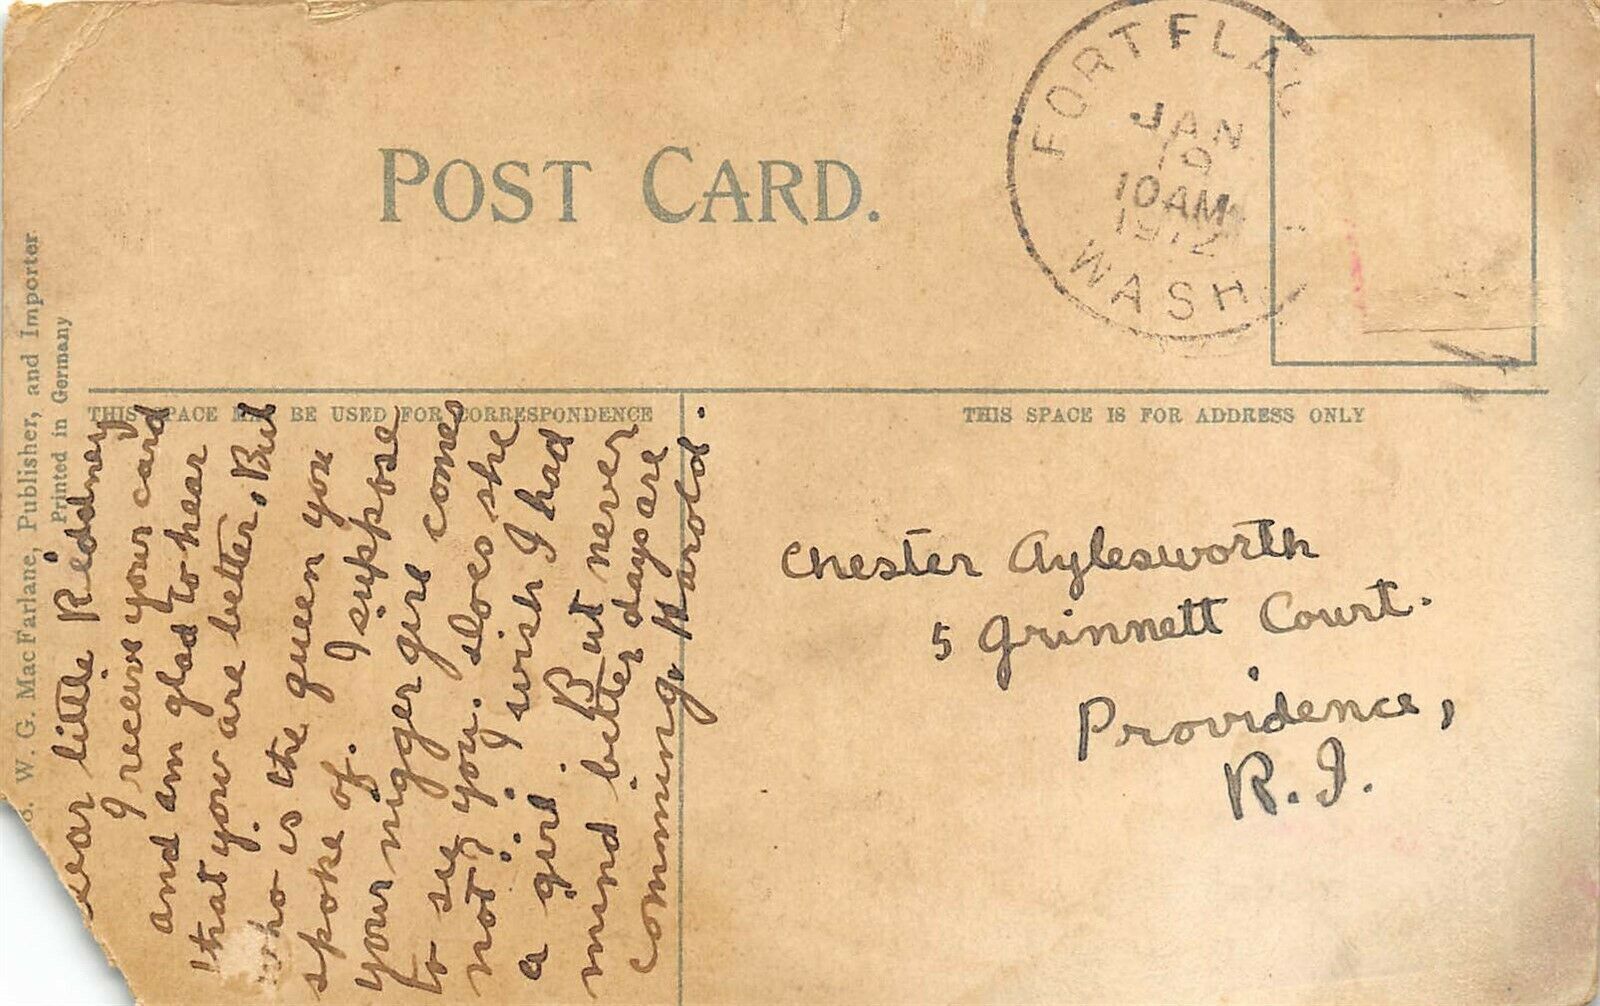 POST CARD.
FORT FLAG
JAN
19
10 AM
1912
WASH.
W. G. MacFarlane, Publisher, and Importer
Printed in Germany
THIS SPACE MAY BE USED FOR CORRESPONDENCE
THIS SPACE IS FOR ADDRESS ONLY
Dear little Riddney
I receive your card
and am glad to hear
that your are better. But
who is the queen you
spoke of. I suppose
your nigger girl comes
to see you. does she
not? I wish I had
a girl. But never
mind better days are
comming. Harold.
Chester Aylesworth
5 Grinnett Court.
Providence,
R. I.